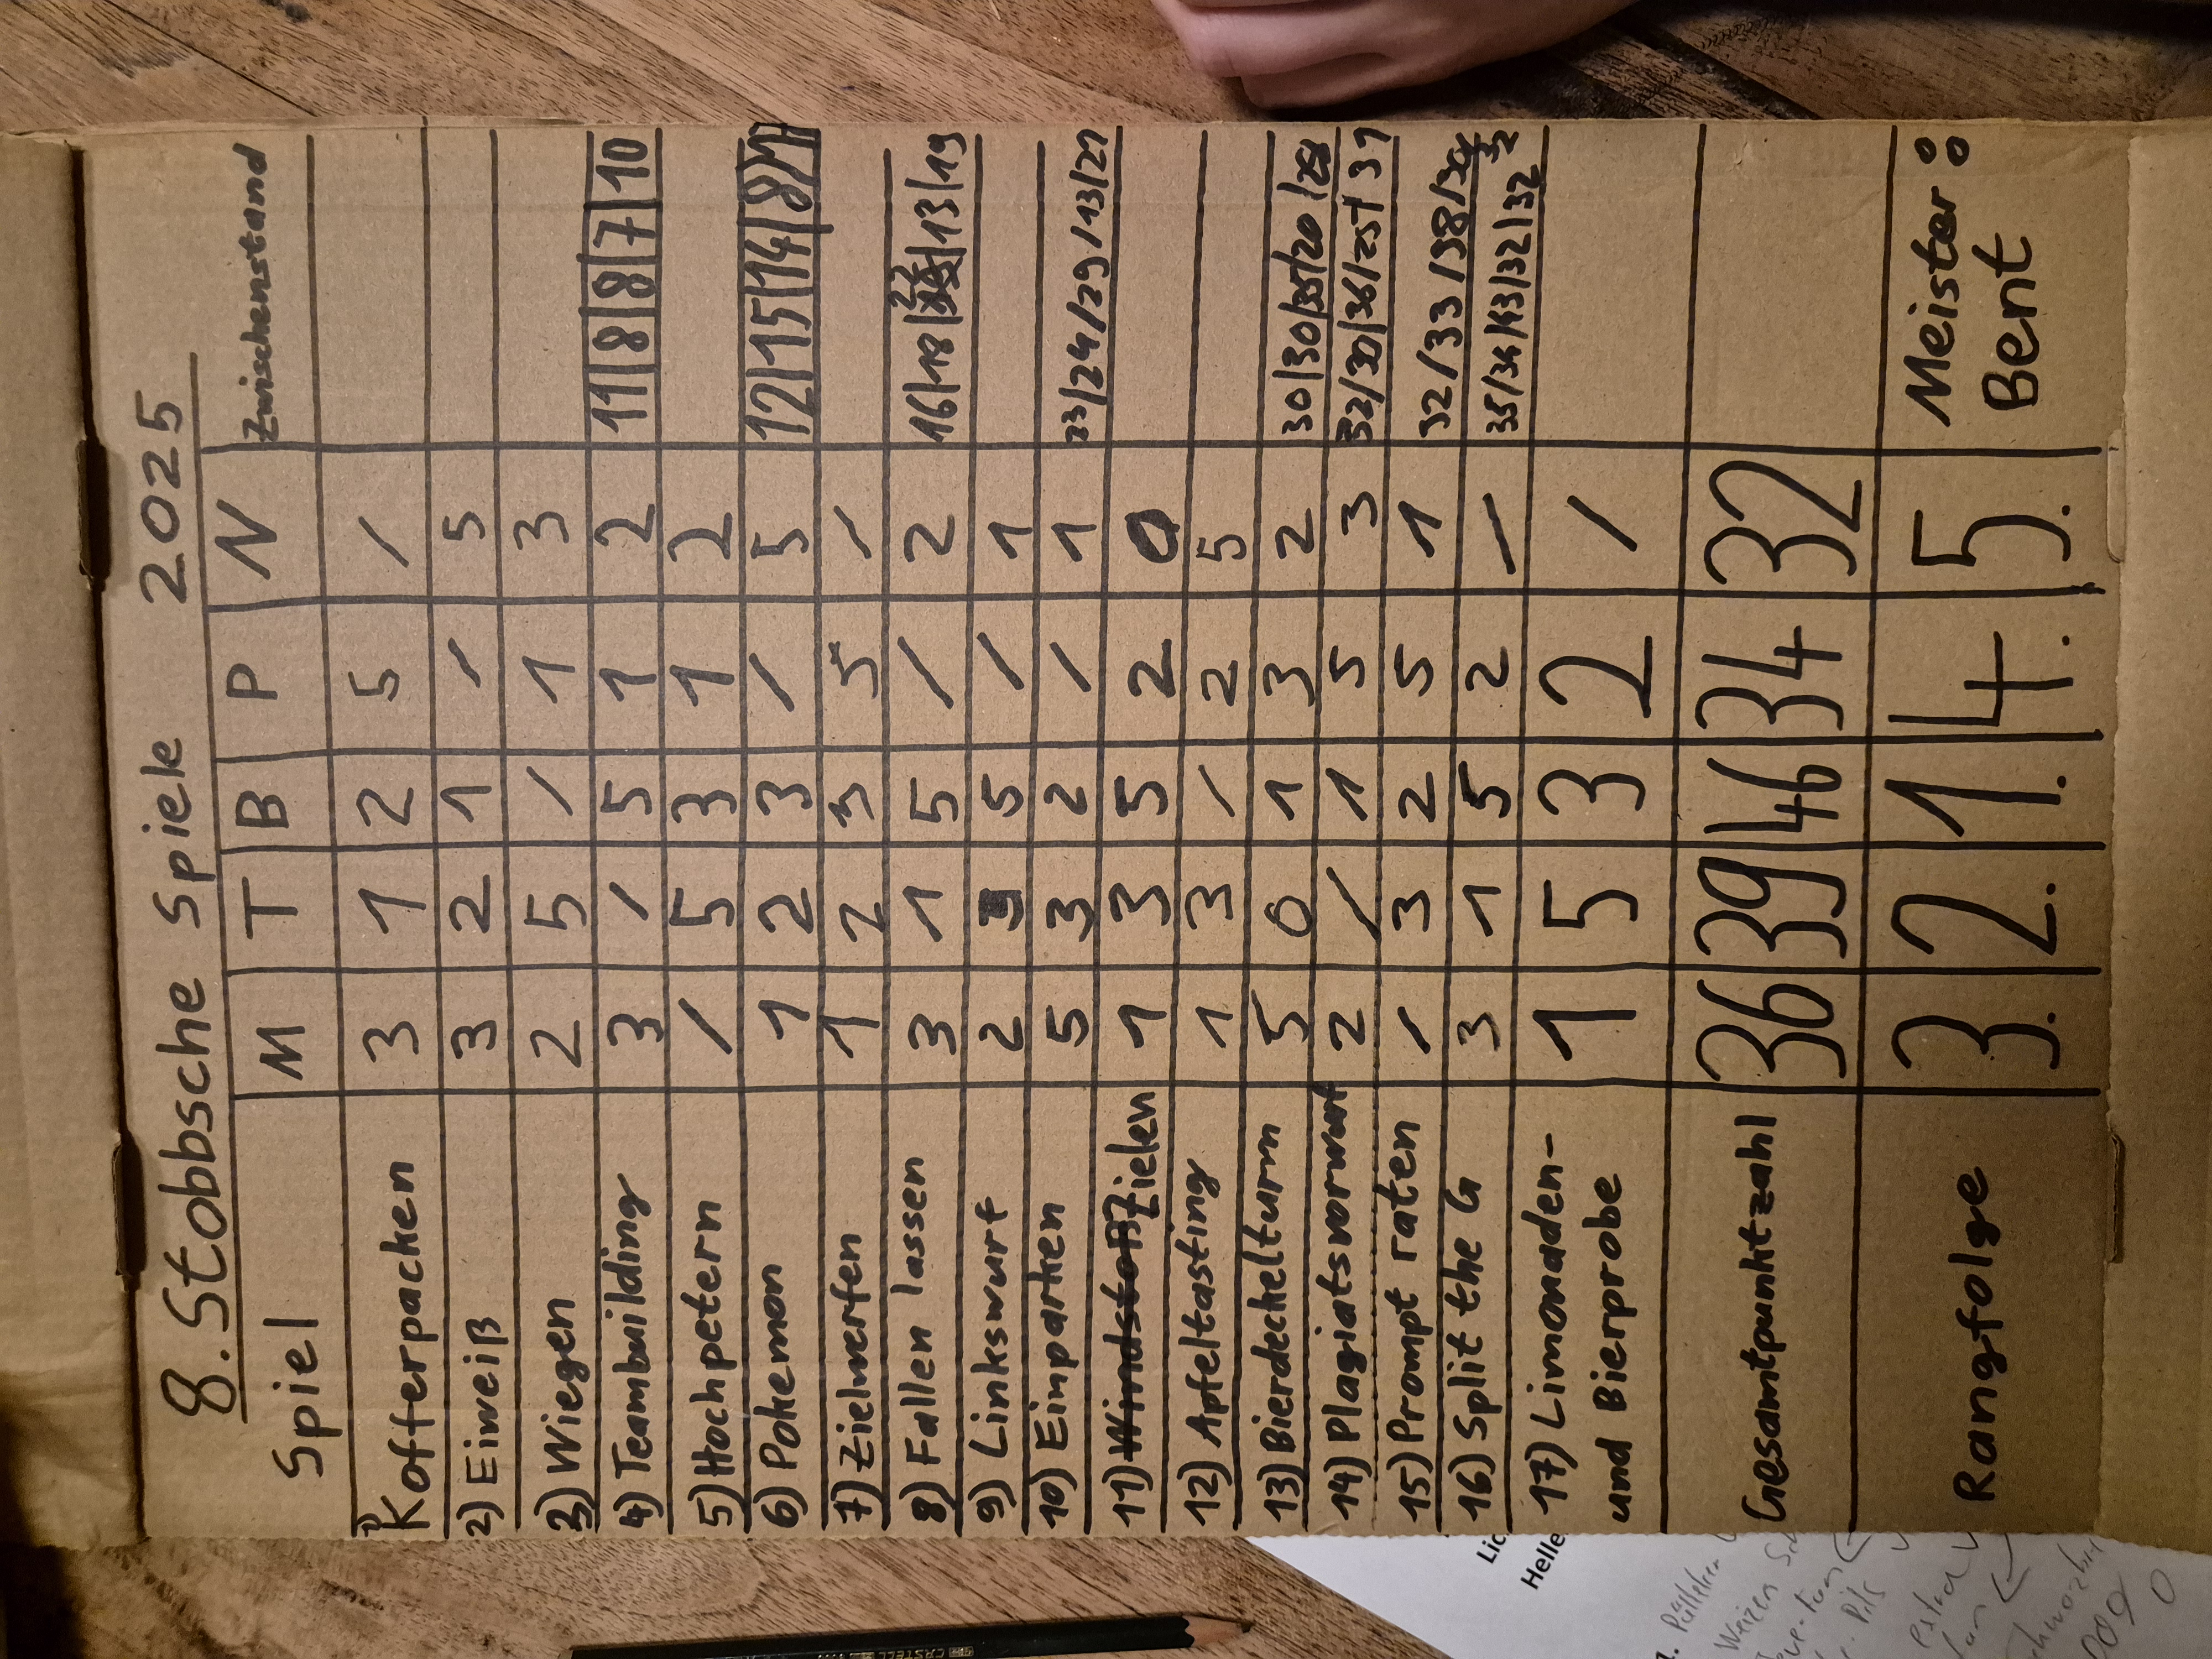 8. Stobbsche Spiele 2025
Spiel M T B P N Zwischenstand
1) Kofferpacken 3 1 2 5 /
2) Eiweiß 3 2 1 / 5
3) Wiegen 2 5 / 1 3
4) Teambuilding 3 / 5 1 2 11|8|8|7|10
5) Hochpetern / 5 3 1 2
6) Pokemon 1 2 3 / 5 12|15|14|8|17
7) Zielwerfen 1 2 3 5 /
8) Fallen lassen 3 1 5 / 2 16|18|22|13|19
9) Linkswurf 2 3 5 / 1
10) Einparken 5 3 2 / 1 23/24/29/13/21
11) Zielen 1 3 5 2 0
12) Apfeltasting 1 3 / 2 5
13) Bierdeckelturm 5 0 1 3 2 30|30|35|20|28
14) Plagiatsvorwurf 2 / 1 5 3 32/30/36/25/31
15) Prompt raten / 3 2 5 1 32/33/38/30/32
16) Split the G 3 1 5 2 / 35/34/43/32/32
17) Limonaden- 1 5 3 2 /
und Bierprobe
Gesamtpunktzahl 36 39 46 34 32
Rangfolge 3. 2. 1. 4. 5. Meister:
Bent
Lic
Helle
Weizen
Pils
CASTELL